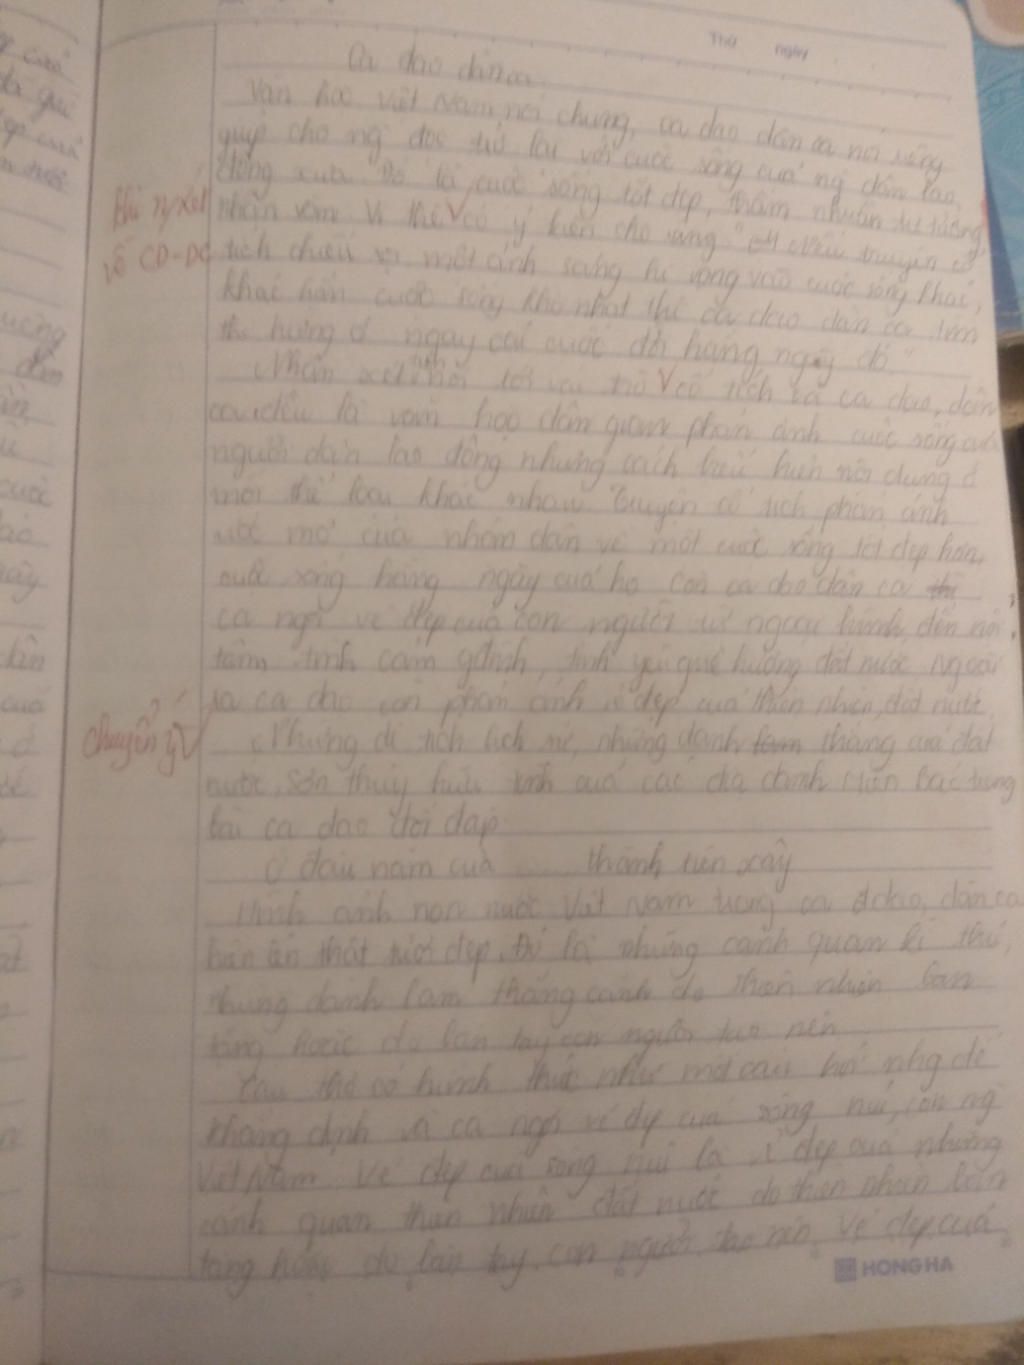 Thứ ngày
Ca dao dân ca
Văn học Việt Nam nói chung, ca dao dân ca nói riêng
giúp cho ng đọc trở lại với cuộc sống của ng dân lao
động xưa. Đó là cuộc sống tốt đẹp, thấm nhuần tư tưởng
nhân văn. Vì thế có ý kiến cho rằng "Nếu truyện cổ
tích chiếu rọi một ánh sáng hi vọng vào cuộc sống khác,
khác hẳn cuộc sống thì ca dao dân ca tìm
hứng ở ngay cái cuộc đời hàng ngày đó"
Khi n/xét
về CD-DC
Nhận xét nói tới vai trò cổ tích và ca dao, dân
ca đều là văn học dân gian phản ánh cuộc sống của
người dân lao động nhưng cách biểu hiện nội dung ở
mỗi thể loại khác nhau. Truyện cổ tích phản ánh
ước mơ của nhân dân về một cuộc sống tốt đẹp hơn
cuộc sống hàng ngày của họ còn ca dao dân ca thì
ca ngợi vẻ đẹp của con người từ ngoại hình đến nội
tâm, tình cảm gđình, tình yêu quê hương, đất nước. Ngoài
ra ca dao còn phản ánh vẻ đẹp của thiên nhiên, đất nước
chuyển ý
Những di tích lịch sử, những danh lam thắng của đất
nước, sơn thủy hữu tình qua các địa danh Miền Bắc trong
bài ca dao đối đáp
Ở đâu năm cửa ...... thành tiên xây
Hình ảnh non nước Việt Nam trong ca dao, dân ca
hiện lên thật tươi đẹp. Đó là những cảnh quan kì thú,
những danh lam thắng cảnh do thiên nhiên ban
tặng hoặc do bàn tay con người tạo nên
Câu thơ có hình thức như một câu hỏi nhg để
khẳng định và ca ngợi vẻ đẹp của sông núi, con ng
Việt Nam. Vẻ đẹp của sông núi là vẻ đẹp của những
cảnh quan thiên nhiên đất nước do thiên nhiên ban
tặng hoặc do bàn tay con người tạo nên. Vẻ đẹp của
HONG HA